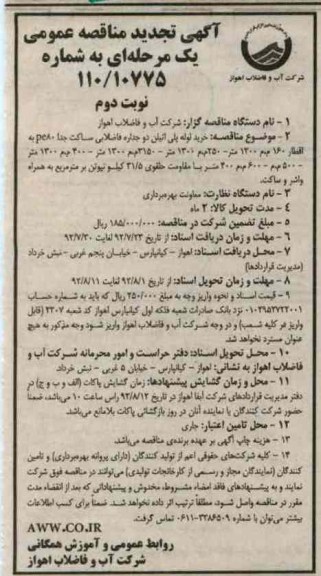 آگهی تجدید مناقصه عمومی
یک مرحله‌ای به شماره
۱۱۰/۱۰۷۷۵
نوبت دوم
شرکت آب و فاضلاب اهواز
۱ - نام دستگاه مناقصه گزار: شرکت آب و فاضلاب اهواز
۲ - موضوع مناقصه: خرید لوله پلی اتیلن دو جداره فاضلابی ساکت جدا pe۸۰ به
اقطار ۱۶۰ م‌م ۱۳۰۰ متر - ۲۵۰ م‌م ۱۳۰۰ متر - ۳۱۵ م‌م ۱۳۰۰ متر - ۴۰۰ م‌م ۱۳۰۰ متر
- ۵۰۰ م‌م - ۶۰۰ م‌م ۴۰۰ متر با مقاومت حلقوی ۳۱/۵ کیلو نیوتن بر مترمربع به همراه
واشر و ساکت.
۳ - نام دستگاه نظارت: معاونت بهره‌برداری
۴ - مدت تحویل کالا: ۲ ماه
۵ - مبلغ تضمین شرکت در مناقصه: ۱۸۵/۰۰۰/۰۰۰ ریال
۶ - مهلت و زمان دریافت اسناد: از تاریخ ۹۲/۷/۲۳ لغایت ۹۲/۷/۳۰
۷ - محل دریافت اسناد: اهواز - کیانپارس - خیابان پنجم غربی - نبش خرداد
(مدیریت قراردادها)
۸ - مهلت و زمان تحویل اسناد: از تاریخ ۹۲/۸/۱ لغایت ۹۲/۸/۱۱
۹ - قیمت اسناد و نحوه واریز وجه به مبلغ ۲۵۰/۰۰۰ ریال که باید به شماره حساب
نزد بانک صادرات شعبه فلکه اول کیانپارس اهواز کد شعبه ۳۳۰۷ (قابل
واریز در کلیه شعب) و در وجه شرکت آب و فاضلاب اهواز واریز شود وجه مذکور به هیچ
عنوان مسترد نخواهد شد.
۱۰ - محل تحویل اسناد: دفتر حراست و امور محرمانه شرکت آب و
فاضلاب اهواز به نشانی: اهواز - کیانپارس - خیابان ۵ غربی - نبش خرداد
۱۱ - محل و زمان گشایش پیشنهادها: زمان گشایش پاکات (الف و ب و ج) در
دفتر مدیریت قراردادهای شرکت آبفا اهواز در تاریخ ۹۲/۸/۱۲ راس ساعت ۱۰ می‌باشد، ضمنا
حضور شرکت کنندگان یا نماینده آنان در روز بازگشائی پاکات بلامانع می‌باشد.
۱۲ - محل تامین اعتبار: جاری
۱۳ - هزینه چاپ آگهی بر عهده برنده‌ی مناقصه می‌باشد.
۱۴ - کلیه شرکت‌های حقوقی اعم از تولید کنندگان (دارای پروانه بهره‌برداری) و تامین
کنندگان (نمایندگان مجاز و رسمی از کارخانجات تولیدی) می‌توانند در مناقصه فوق شرکت
نمایند و به پیشنهادهای فاقد امضاء، مشروط، مخدوش و پیشنهاداتی که بعد از انقضاء مدت
مقرر در مناقصه واصل شود، مطلقاً ترتیب اثر داده نخواهد شد. ضمناً برای کسب اطلاعات
بیشتر می‌توان با شماره ۳۳۸۶۵۰۹-۰۶۱۱ تماس گرفت.
AWW.CO.IR
روابط عمومی و آموزش همگانی
شرکت آب و فاضلاب اهواز